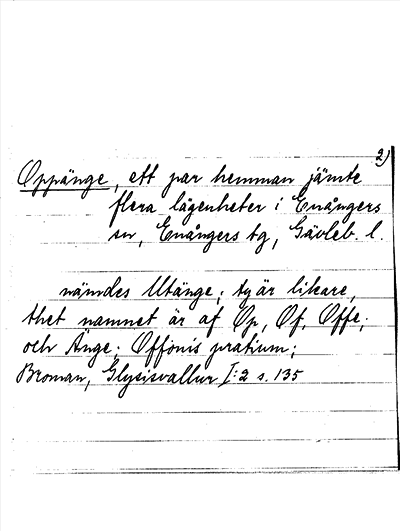 2)
Oppänge, ett par hemman jämte
flera lägenheter i Enångers
sn, Enångers tg, Gävleb. l.
nämdes Utänge; ty är likare,
thet namnet är af Op, Of, Offe;
och Änge; Offonis pratium;
Broman, Glysisvallur I:2 s. 135